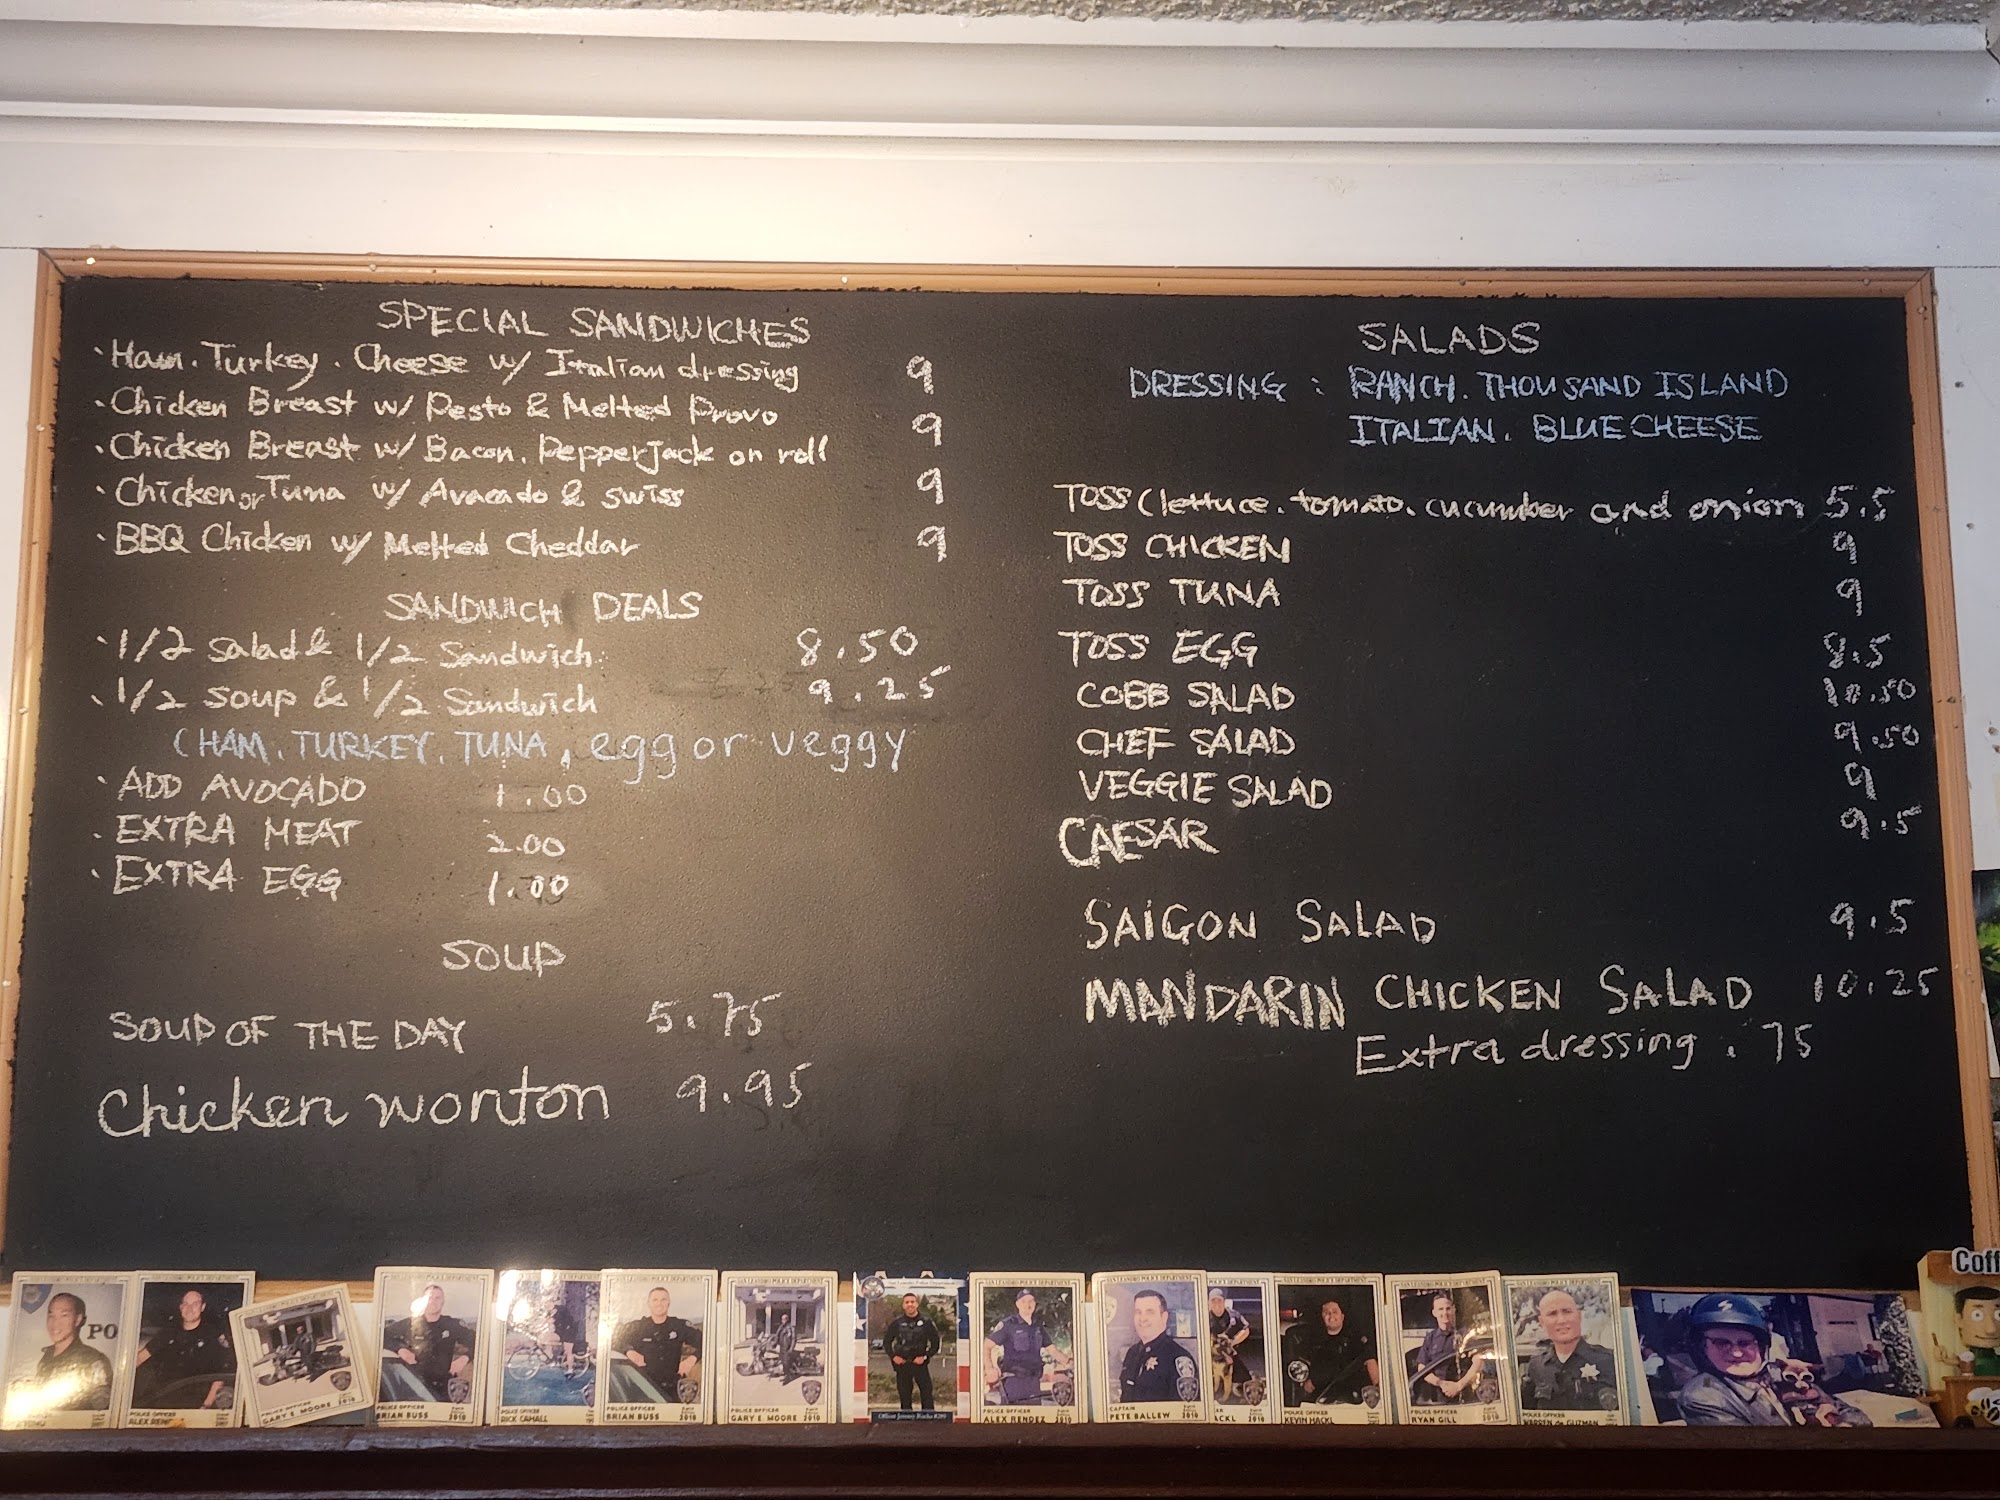 SPECIAL SANDWICHES
· Ham. Turkey. Cheese w/ Italian dressing 9
· Chicken Breast w/ Pesto & Melted Provo 9
· Chicken Breast w/ Bacon. Pepperjack on roll
· Chicken or Tuna w/ Avacado & swiss 9
· BBQ Chicken w/ Melted Cheddar 9
SANDWICH DEALS
· 1/2 salad & 1/2 Sandwich 8.50
· 1/2 soup & 1/2 Sandwich 9.25
(HAM. TURKEY. TUNA, egg or veggy
· ADD AVOCADO 1.00
· EXTRA MEAT 2.00
· EXTRA EGG 1.00
SOUP
SOUP OF THE DAY 5.75
Chicken wonton 9.95
SALADS
DRESSING : RANCH. THOUSAND ISLAND
ITALIAN. BLUE CHEESE
TOSS (lettuce. tomato. cucumber and onion 5.5
TOSS CHICKEN 9
TOSS TUNA 9
TOSS EGG 8.5
COBB SALAD 10.50
CHEF SALAD 9.50
VEGGIE SALAD 9
CAESAR 9.5
SAIGON SALAD 9.5
MANDARIN CHICKEN SALAD 10.25
Extra dressing .75
Coff
PO
POLICE OFFICER
ALEX
POLICE OFFICER
GARY E. MOORE 2010
POLICE OFFICER
BRIAN BUSS 2010
POLICE OFFICER
RICK CAHALL
POLICE OFFICER
BRIAN BUSS 2010
POLICE OFFICER
GARY E. MOORE 2010
POLICE OFFICER
ALEX RENDEZ 2010
CAPTAIN
PETE BALLEW 2010
ACKL 2010
POLICE OFFICER
KEVIN HACKL 2010
POLICE OFFICER
RYAN GILL 2010
POLICE OFFICER
WARREN de GUZMAN